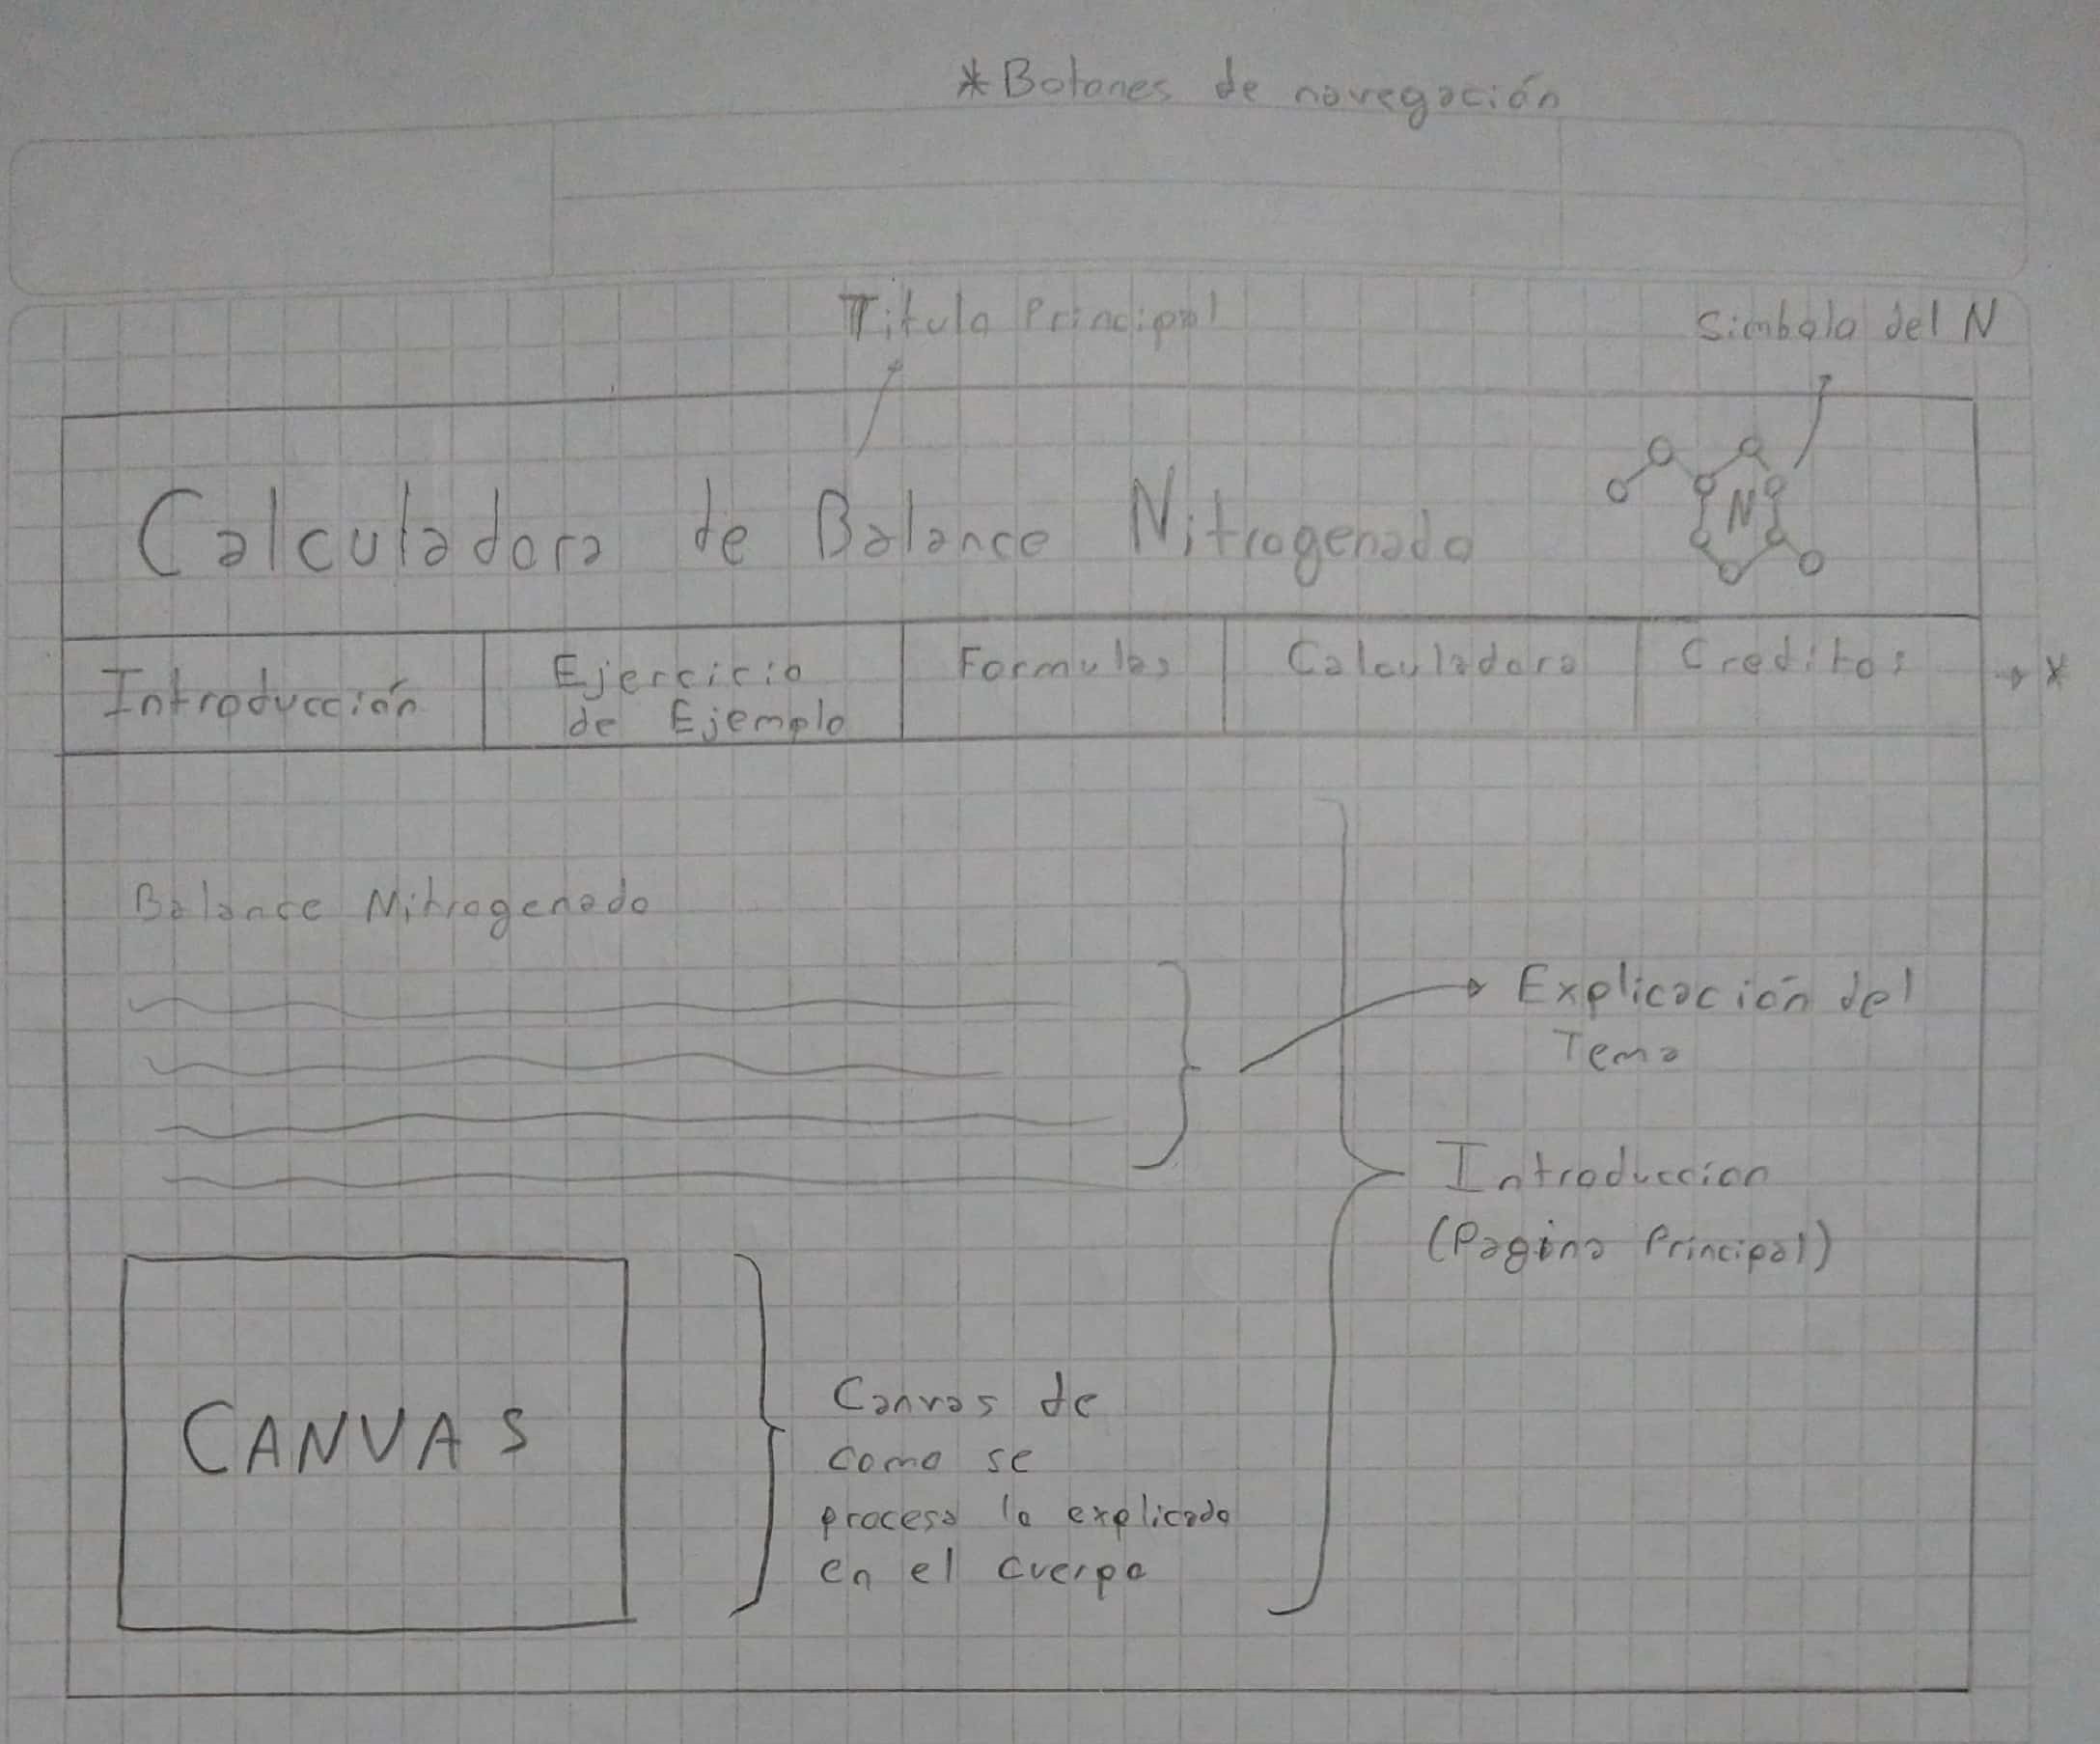 *Botones de navegación
Titulo Principal
Simbolo del N
Calculadora de Balance Nitrogenado
N
Introducción
Ejercicio
de Ejemplo
Formulas
Calculadora
Creditos
*
Balance Nitrogenado
Explicación del
Tema
Introduccion
(Pagina Principal)
CANVAS
Canvas de
como se
procesa lo explicado
en el cuerpo